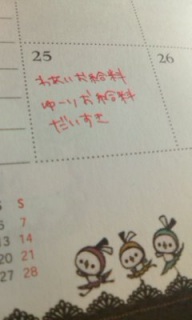 25
26
わあいお給料
ゆーりお給料
だいすき
S
S
6
7
13
14
20
21
27
28